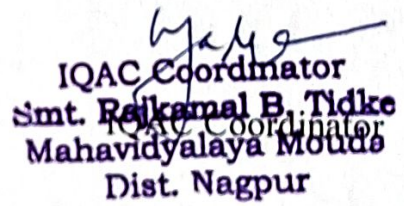 IQAC Coordinator
Smt. Rajkamal B. Tidke
IQAC Coordinator
Mahavidyalaya Mouda
Dist. Nagpur